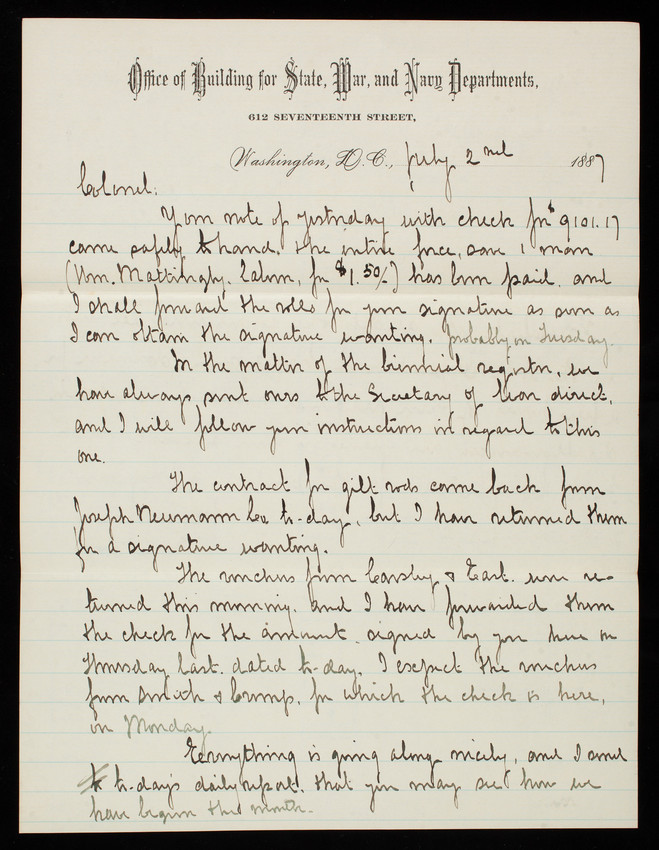 Office of Building for State, War, and Navy Departments,
612 SEVENTEENTH STREET,
Washington, D.C., July 2nd 1887
Colonel:
Your note of yesterday with check for $9101.17
came safely to hand. The entire force, save 1 man
(Wm. Mattingly. Labor, for $1.50/-) has been paid. and
I shall forward the rolls for your signature as soon as
I can obtain the signature wanting. probably on Tuesday.
In the matter of the biennial register, we
have always sent ours to the Secretary of War direct,
and I will follow your instructions in regard to this
one.
The contract for gilt rods came back from
Joseph Neumann Co to-day, but I have returned them
for a signature wanting.
The vouchers from & East. were re-
turned this morning. and I have forwarded them
the check for the amount signed by you here on
Thursday last. dated to-day. I expect the vouchers
from Smith & Crump, for which the check is here,
on Monday.
Everything is going along nicely, and I send
to-day's daily report. that you may see how we
have begun this month.